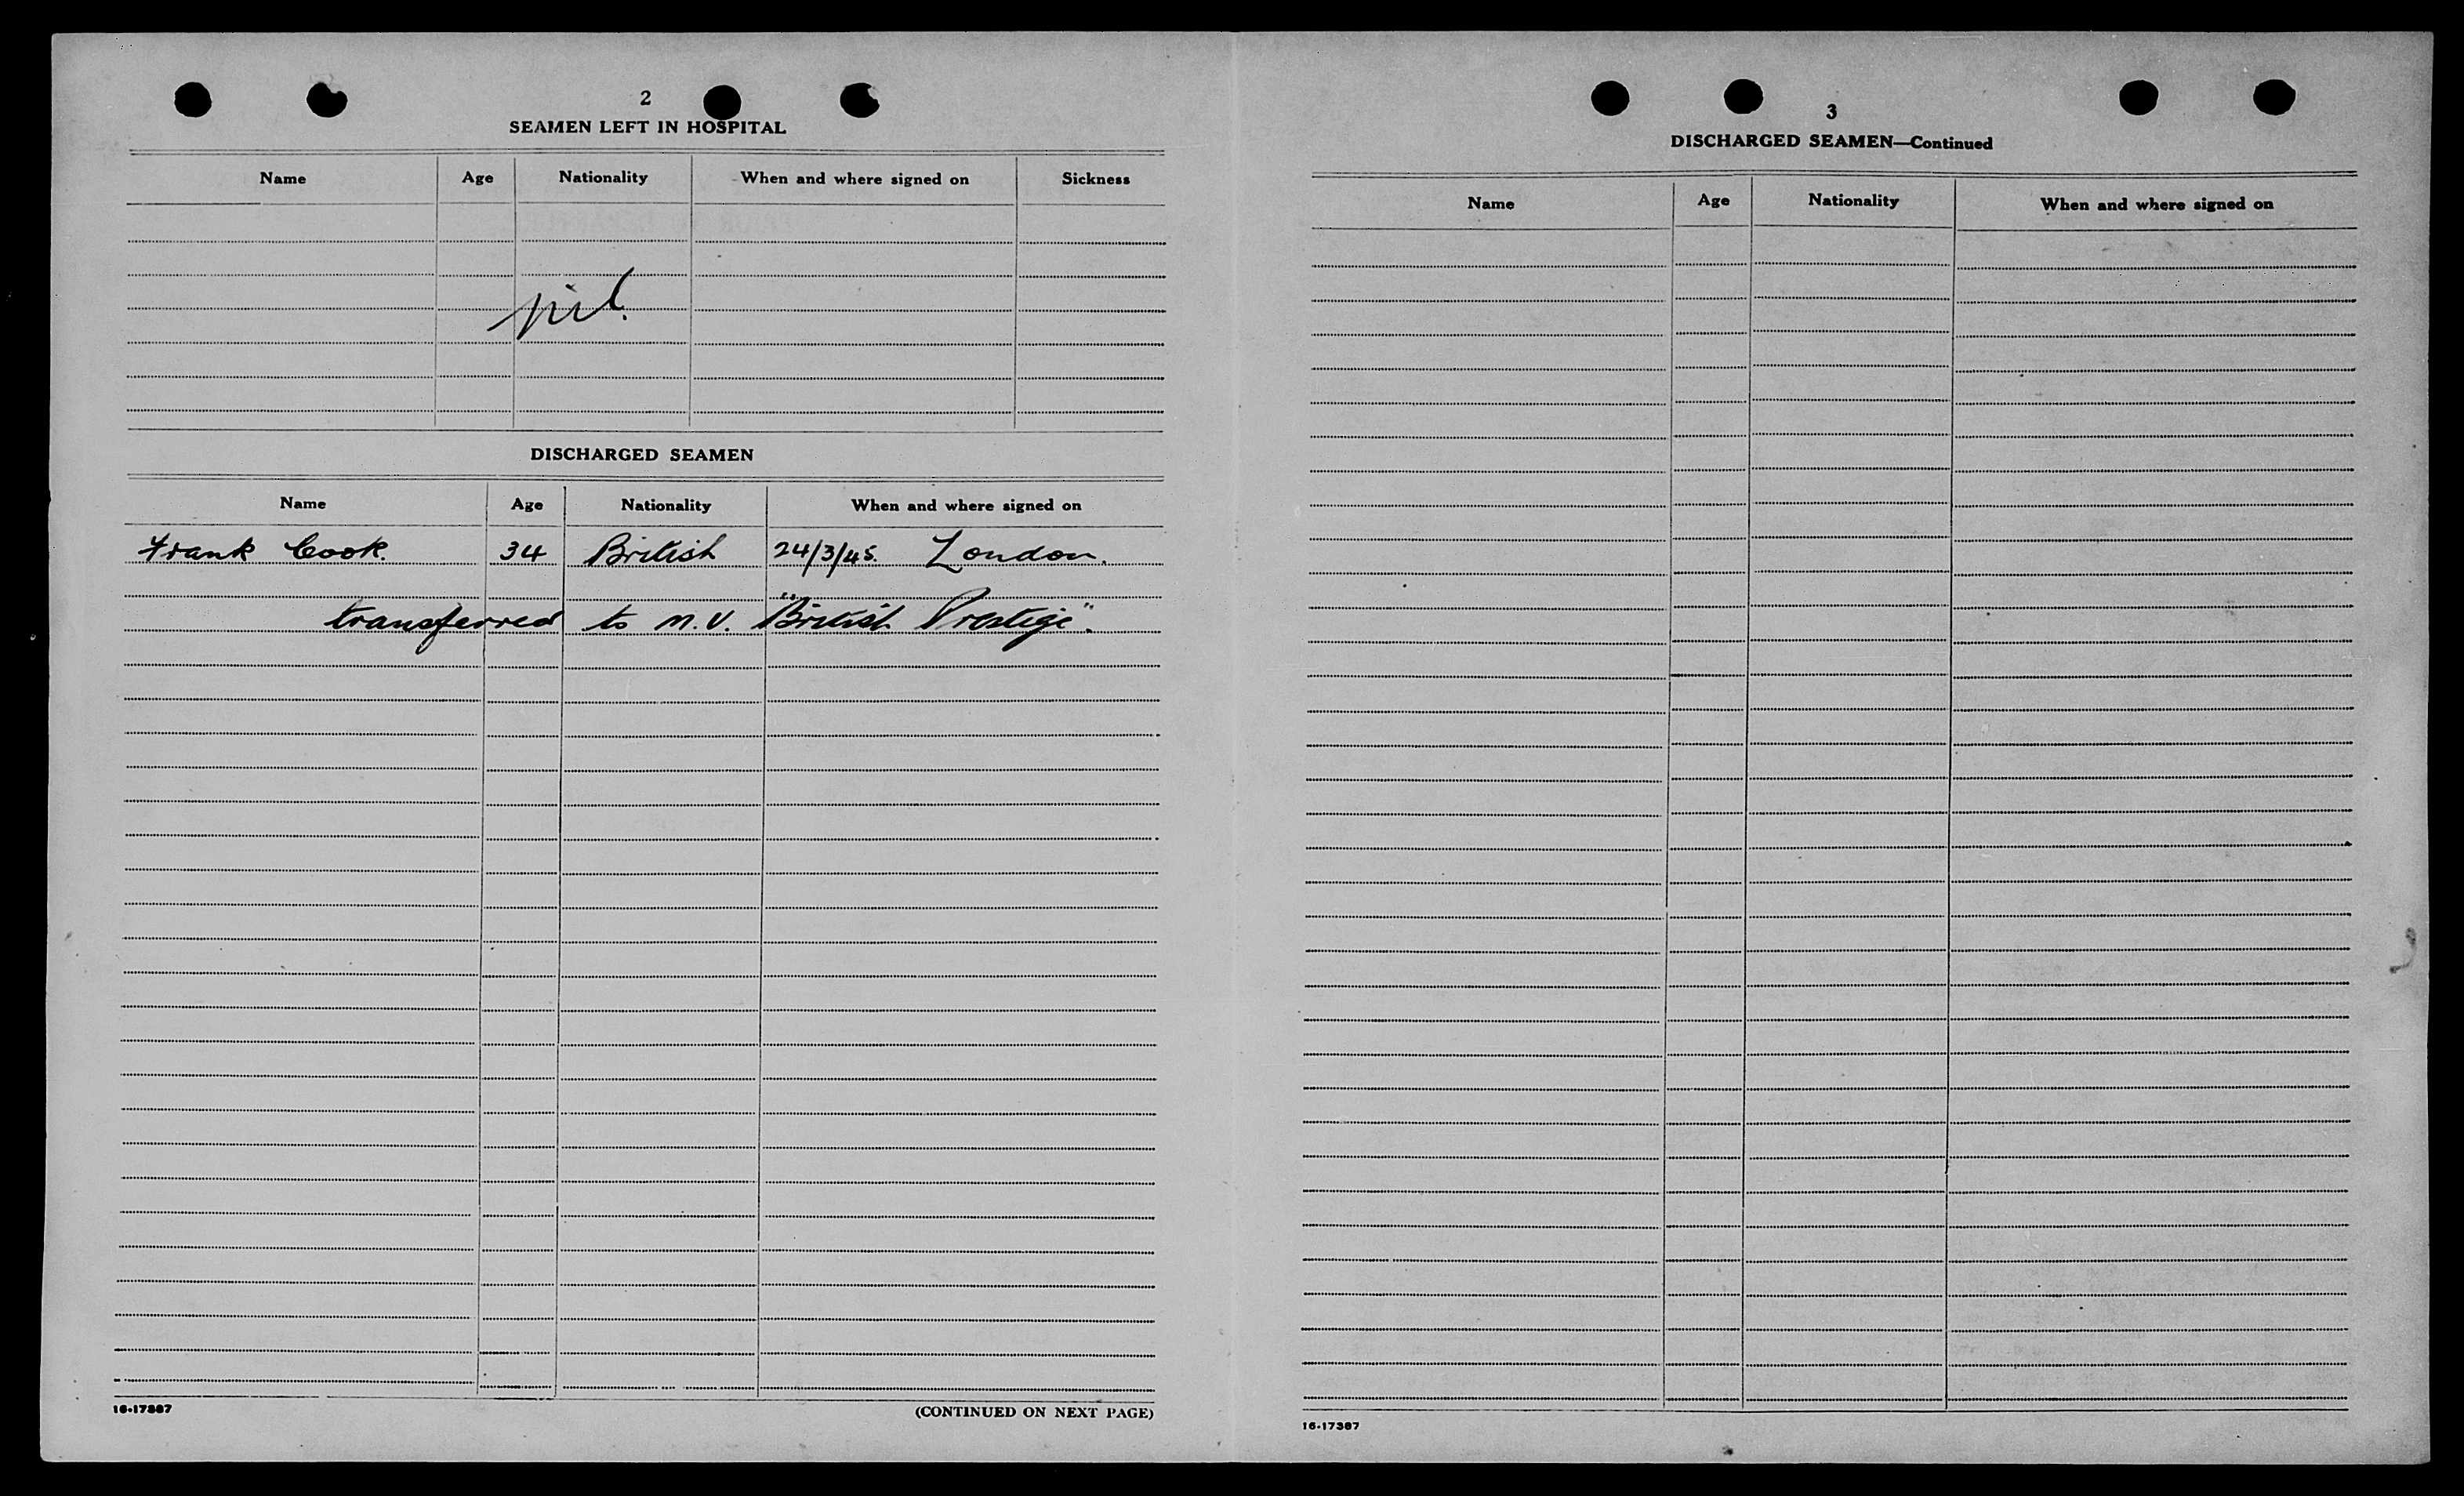 2
SEAMEN LEFT IN HOSPITAL
Name Age Nationality When and where signed on Sickness
nil.
DISCHARGED SEAMEN
Name Age Nationality When and where signed on
Frank Cook. 34 British 24/3/45. London.
transferred to M.V. "British Prestige".
16-17387 (CONTINUED ON NEXT PAGE)
3
DISCHARGED SEAMEN—Continued
Name Age Nationality When and where signed on
16-17387